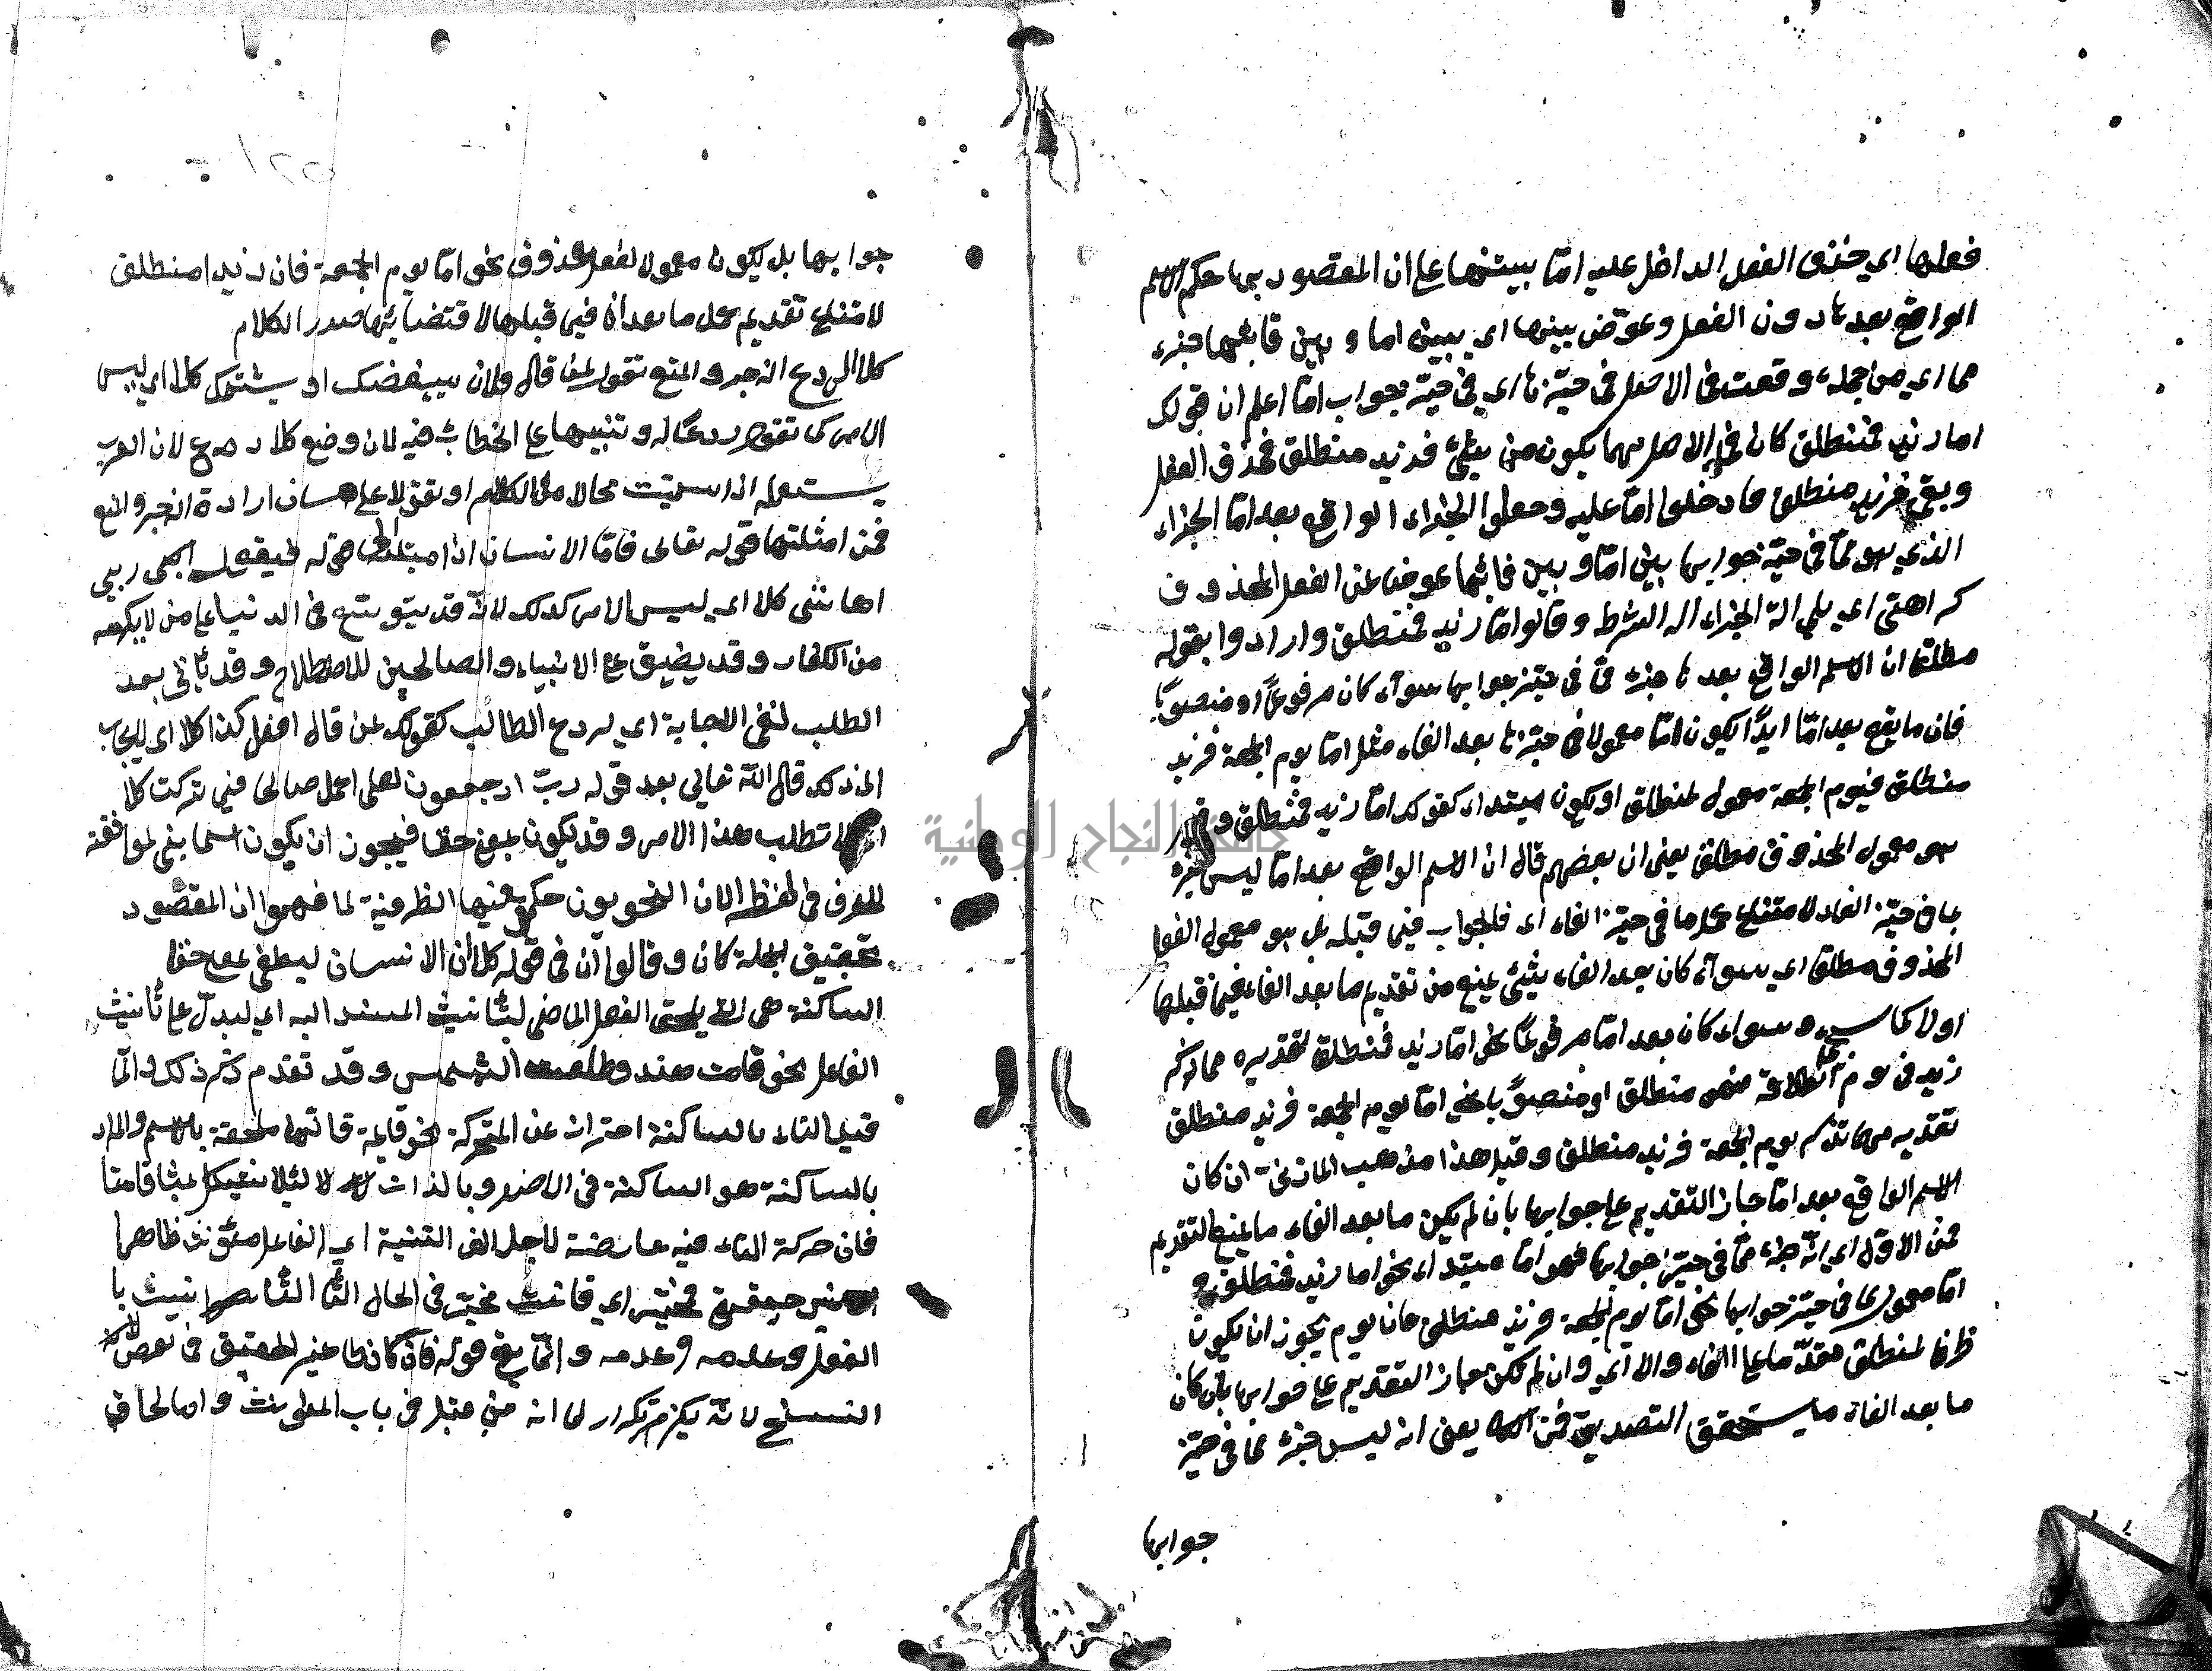 فعلها اي حذف الفعل الداخل عليه اما بينها على ان المقصود بها حكم الاسم
الواقع بعدها دون الفعل وعوّض بينها اي بين اما وبين فائها جزء
مما اي من جملة وقعت في الاصل في حيّزها اي في حيّز جواب امّا اعلم ان قولك
اما زيد فمنطلق كان في الاصل مهما يكون من شئ فزيد منطلق فحذف الفعل
وبقى فزيد منطلق فادخلوا امّا عليه وجعلوا الجزاء الواقع بعد امّا الجزاء
الذي هو ممّا في حيّز جوابها بين امّا وبين فائها عوضا عن الفعل المحذوف
كراهتى اي يلى الة الجزاء الة الشرط وقالوا امّا زيد فمنطلق وارادوا بقوله
مطلقا ان الاسم الواقع بعدها جزء ممّا في حيّز جوابها سواء كان مرفوعًا او منصوبًا
فان ما يقع بعد امّا ابدًا يكون امّا معمولا في حيّزها بعد الفاء مثل امّا يوم الجمعة فزيد
منطلق فيوم الجمعة معمول لمنطلق او يكون مبتداء كقولك امّا زيد فمنطلق وقيل
هو معمول المحذوف مطلق يعنى ان بعضهم قال ان الاسم الواقع بعد امّا ليس جزء
مما في حيّز الفاء لامتناع عمل ما في حيّز الفاء اى فالجواب فيما قبله بل هو معمول الفعل
المحذوف مطلقا اي سواء كان بعد الفاء شئ يمنع من تقديم ما بعد الفاء فيما قبلها
اولا كما وسواء كان بعد امّا مرفوعًا نحو امّا زيد فمنطلق تقديره مما تذكر
زيد في يوم منطلق او منصوبًا نحو امّا يوم الجمعة فزيد منطلق
تقديره مهما تذكر يوم الجمعة فزيد منطلق وقيل هذا مذهب المازني ان كان
الاسم الواقع بعد امّا جاز التقديم على جوابها بان لم يكن ما بعد الفاء ما يمنع التقديم
فمن الاوّل اي انّه جزء ممّا في حيّز جوابها فهو امّا مبتداء نحو اما زيد فمنطلق و
امّا معمول في حيّز جوابها نحو امّا يوم الجمعة فزيد منطلق فان يوم يجوز ان يكون
ظرفا لمنطلق مقدّما على الفاء والا اي وان لم يكن جاز التقديم على جوابها بان كان
ما بعد الفاء ما يستحقق التصديق فمن الثاني يعنى انه ليس جزء مما في حيّز
جوابها
جوابها بل يكون معمولا لفعل محذوف نحو امّا يوم الجمعة فان زيدا منطلق
لامتناع تقديم عمل ما بعد ان فيما قبلها لاقتضائها صدر الكلام
كلا الردع الزجر والمنع تقول لمن قال فلان يبغضك او يشتمك كلا اي ليس
الامر كما تقول ردعًا له وتنبيها على الخطاب فيه لان وضع كلا ردع لان العرب
يستعمله اذا سمعت محالا من الكلام او تقوّلا على انسان ارادة الزجر والمنع
فمن امثلتها قوله تعالى فامّا الانسان اذا ما ابتلى الى قوله فيقول ربي
اهانني كلا اي ليس الامر كذلك لانّه قد يتوسّع في الدنيا على من لا يكرمه
من الكفار وقد يضيق على الانبياء والصالحين للاصطلاح وقد يأتى بعد
الطلب لنفى الاجابة اي لردع الطالب كقولك لمن قال افعل كذا كلا اى لا يجاب
الى ذلك قال الله تعالى بعد قوله ربّ ارجعون لعلى اعمل صالحا فيما تركت كلا
اى لا تطلب هذا الامر وقد يكون بمعنى حقا فيجوز ان يكون اسما بنى لموافقته
للحرف في لفظه الا ان النحويون حكموا فيها الظرفية لما فهموا ان المقصود
تحقيق الجملة كان وقالوا ان في قوله كلا ان الانسان ليطغى بمعنى حقا
الساكنة هى التي يلحق الفعل الماضى لتأنيث المسند اليه اي ليدلّ على تأنيث
الفاعل نحو قامت هند وطلعت الشمس وقد تقدم ذكر ذلك وانّما
قيل التاء بالساكنة احتراز عن المتحركة نحو قائمة فانها ملحقة بالاسم والمراد
بالساكنة هو الساكنة في الاصل وبالذات لا لئلا يشكل بمثل قامتا
فان حركة التاء فيه عارضة لاجل الف التثنية اي الفاعل مؤنث ظاهرا
غير حقيقي فمخيّر اي فانت مخيّر في الحال التأنيث با
الفعل وعدمه وانّما يقع قوله فان كان ظاهرا غير الحقيقي في بعض
النسخ لانّه يلزم تكرار لما انه من قبل في باب المؤنث واما لحاق